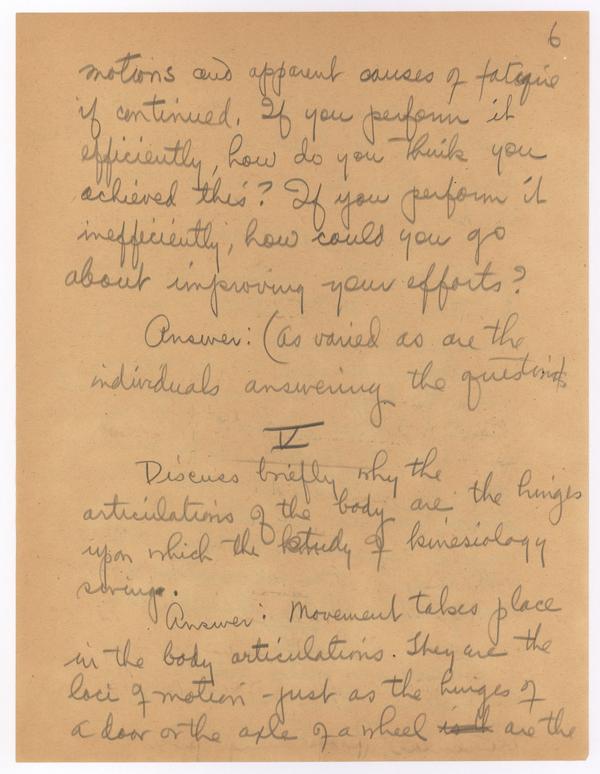 6
motions and apparent causes of fatigue
if continued. If you perform it
efficiently, how do you think you
achieved this? If you perform it
inefficiently, how could you go
about improving your efforts?
Answer: (as varied as are the
individuals answering the questions
V
Discuss briefly why the
articulations of the body are the hinges
upon which the study of kinesiology
swings.
Answer: Movement takes place
in the body articulations. They are the
loci of motion - just as the hinges of
a door or the axle of a wheel are the